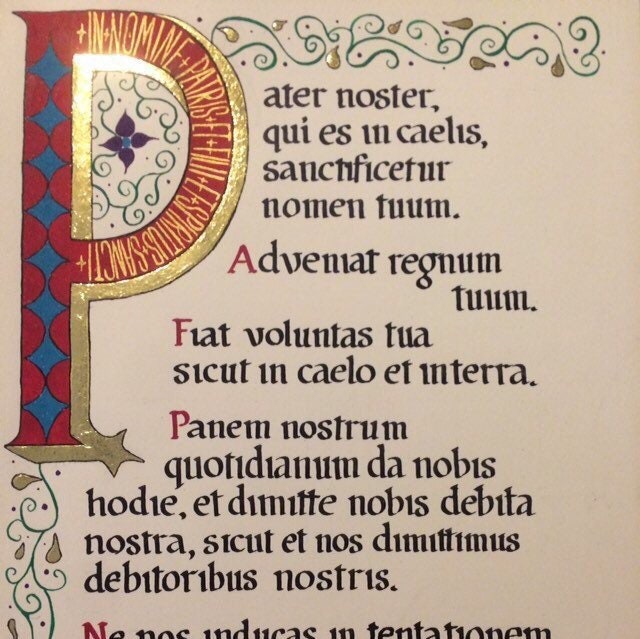 +IN+NOMINE+PATRIS+ET+FILII+ET+SPIRITUS+SANCTI+
Pater noster,
qui es in caelis,
sanctificetur
nomen tuum.
Adveniat regnum
tuum.
Fiat voluntas tua
sicut in caelo et in terra.
Panem nostrum
quotidianum da nobis
hodie, et dimitte nobis debita
nostra, sicut et nos dimittimus
debitoribus nostris.
Ne nos inducas in tentationem